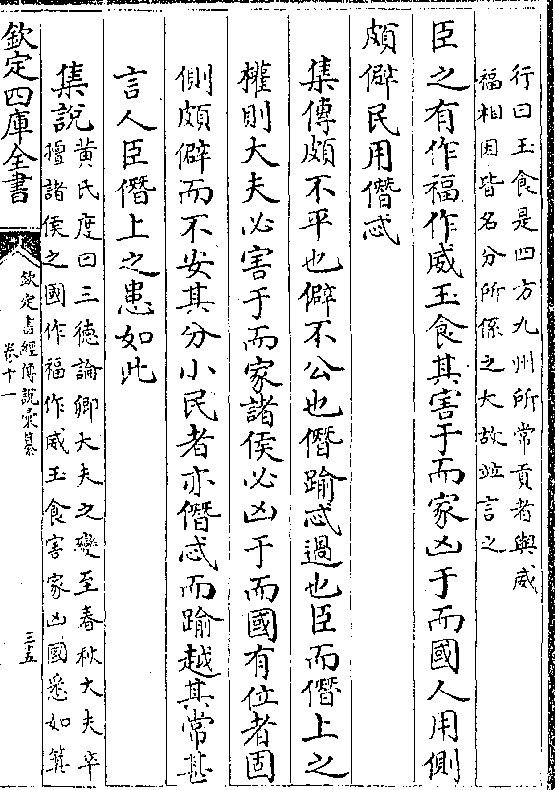 行曰玉食是四方九州所常貢者與威
福相因皆名分所係之大故並言之
臣之有作福作威玉食其害于而家凶于而國人用側
頗僻民用僭忒
集傳頗不平也僻不公也僭踰忒過也臣而僭上之
權則大夫必害于而家諸侯必凶于而國有位者固
側頗僻而不安其分小民者亦僭忒而踰越其常甚
言人臣僭上之患如此
集說黃氏度曰三德論卿大夫之變至春秋大夫卒
擅諸侯之國作福作威玉食害家凶國悉如箕
欽定四庫全書
欽定書經傳說彙纂
卷十一
三五